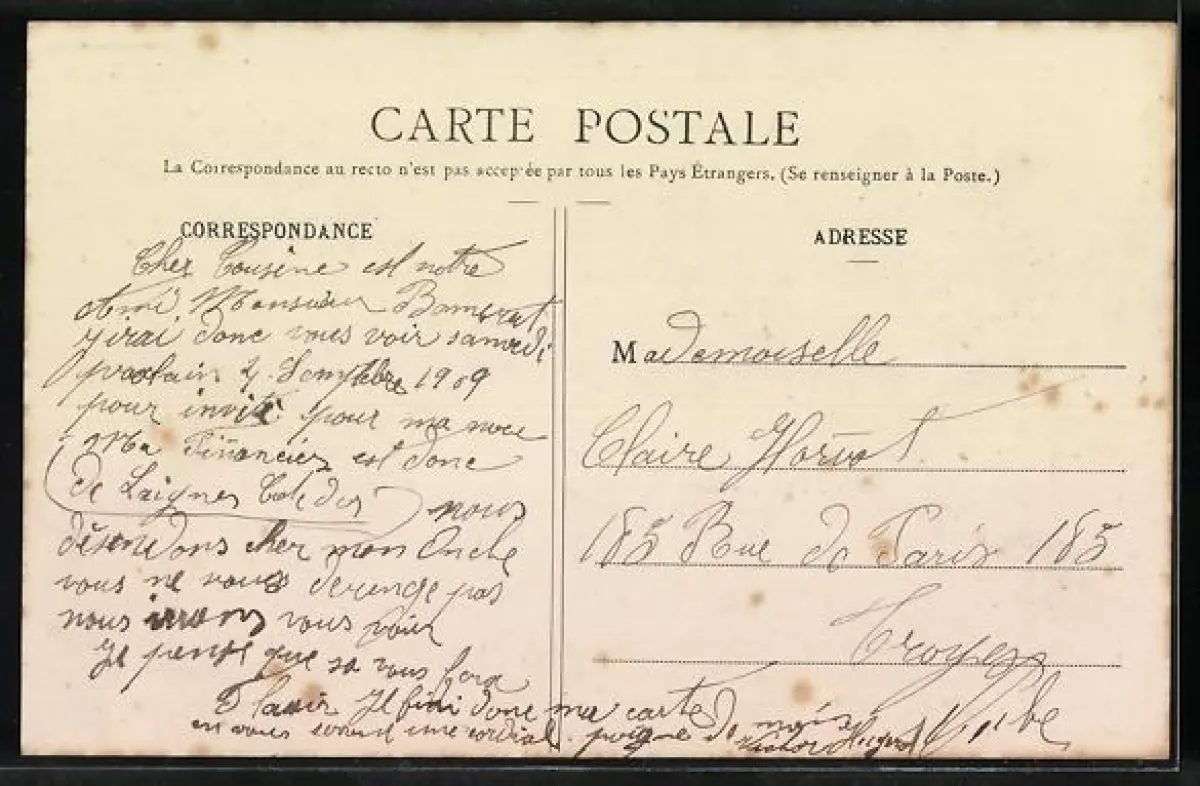 CARTE POSTALE
La Correspondance au recto n'est pas acceptée par tous les Pays Étrangers. (Se renseigner à la Poste.)
CORRESPONDANCE
Cher Cousine est notre
Ami Monsieur
y irai donc vous voir samedi
4 1909
pour invité pour ma noce
Ma Financier est donc
(de Laignes Cote dor) nous
désendons cher mon Oncle
vous ne vous derenge pas
nous irrons vous voir
Je pense que sa vous fera
Plaisir Je fini donc ma carte
en vous une cordial poigne de
ADRESSE
Mademoiselle
Claire
185 Rue de Paris 185
Troyes
Aube